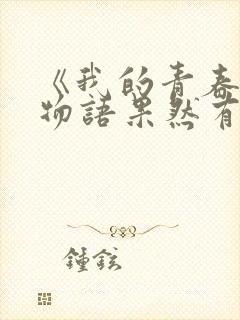 《我的青春
物語果然有
鍾鉉